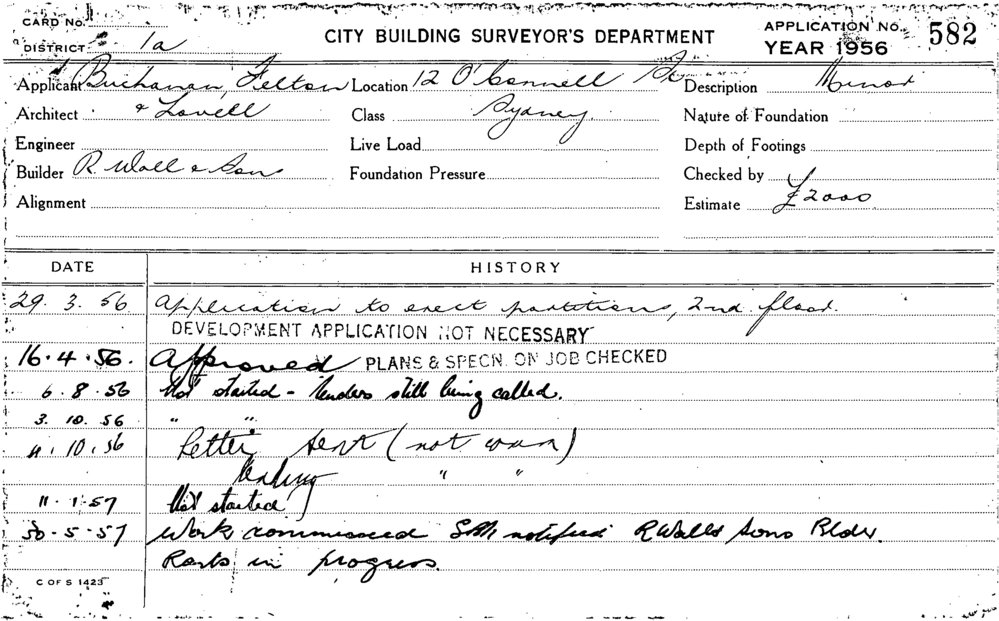 CARD No.
DISTRICT 1a
CITY BUILDING SURVEYOR'S DEPARTMENT
APPLICATION No. 582
YEAR 1956
Applicant Buchanan, Felton Location 12 O'Connell St Description Minor
Architect & Lovell Class Sydney. Nature of Foundation
Engineer Live Load Depth of Footings
Builder R Wall & Sons Foundation Pressure Checked by
Alignment Estimate £2000
DATE HISTORY
29. 3. 56 Application to erect partitions, 2nd floor.
DEVELOPMENT APPLICATION NOT NECESSARY
16.4.56. Approved PLANS & SPECN. ON JOB CHECKED
6.8.56 Not started - tenders still being called.
3. 10. 56 " "
4.10.56 Letter sent (not comm)
" "
11.1.57 Not started
30.5.57 Work commenced notified R Wall & Sons Bldr.
in progress.
C OF S 1423